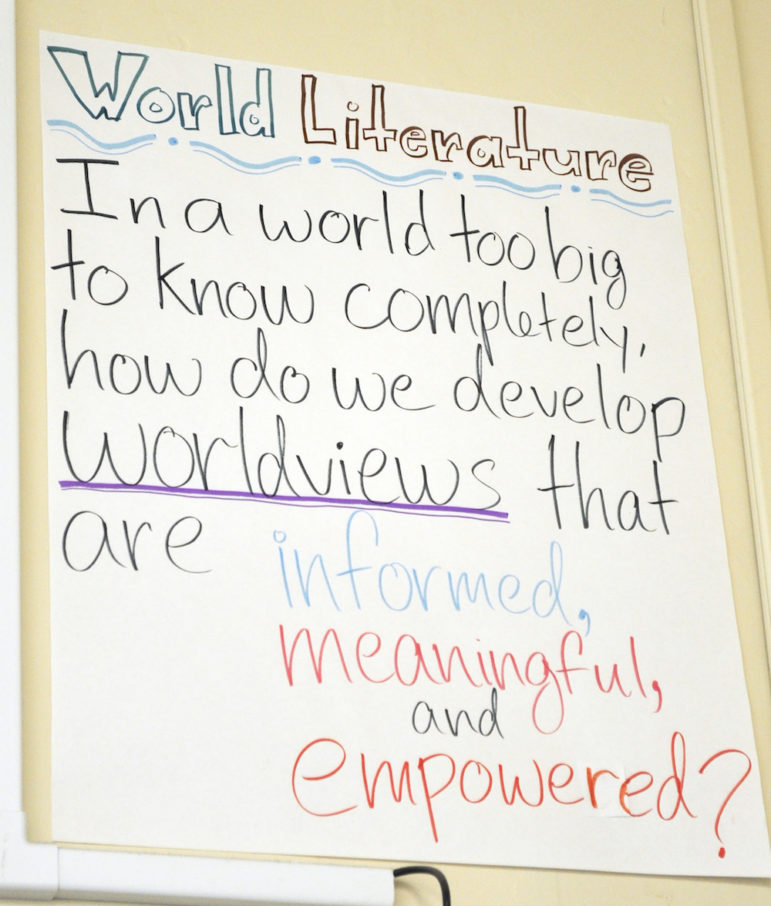 World Literature
In a world too big
to know completely,
how do we develop
worldviews that
are
informed,
meaningful,
and
empowered?